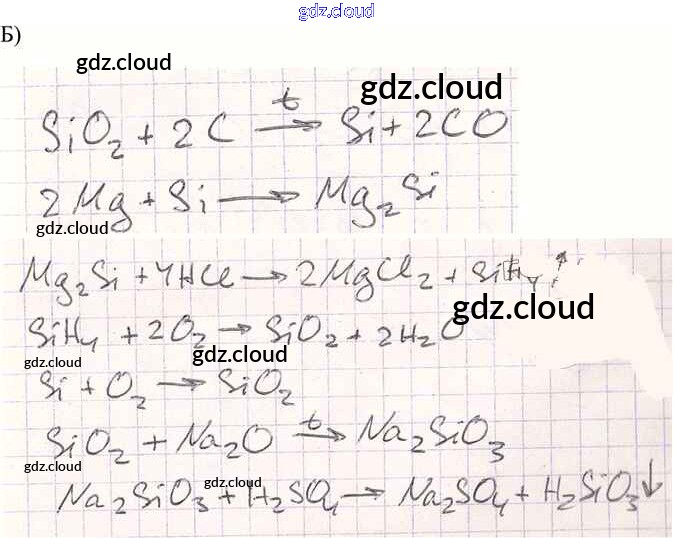 gdz.cloud
Б)
gdz.cloud
gdz.cloud
SiO₂ + 2C t→ Si + 2CO
2Mg + Si → Mg₂Si
gdz.cloud
Mg₂Si + 4HCl → 2MgCl₂ + SiH₄↑
gdz.cloud
SiH₄ + 2O₂ → SiO₂ + 2H₂O
gdz.cloud
gdz.cloud
Si + O₂ → SiO₂
SiO₂ + Na₂O t→ Na₂SiO₃
gdz.cloud
gdz.cloud
Na₂SiO₃ + H₂SO₄ → Na₂SO₄ + H₂SiO₃↓